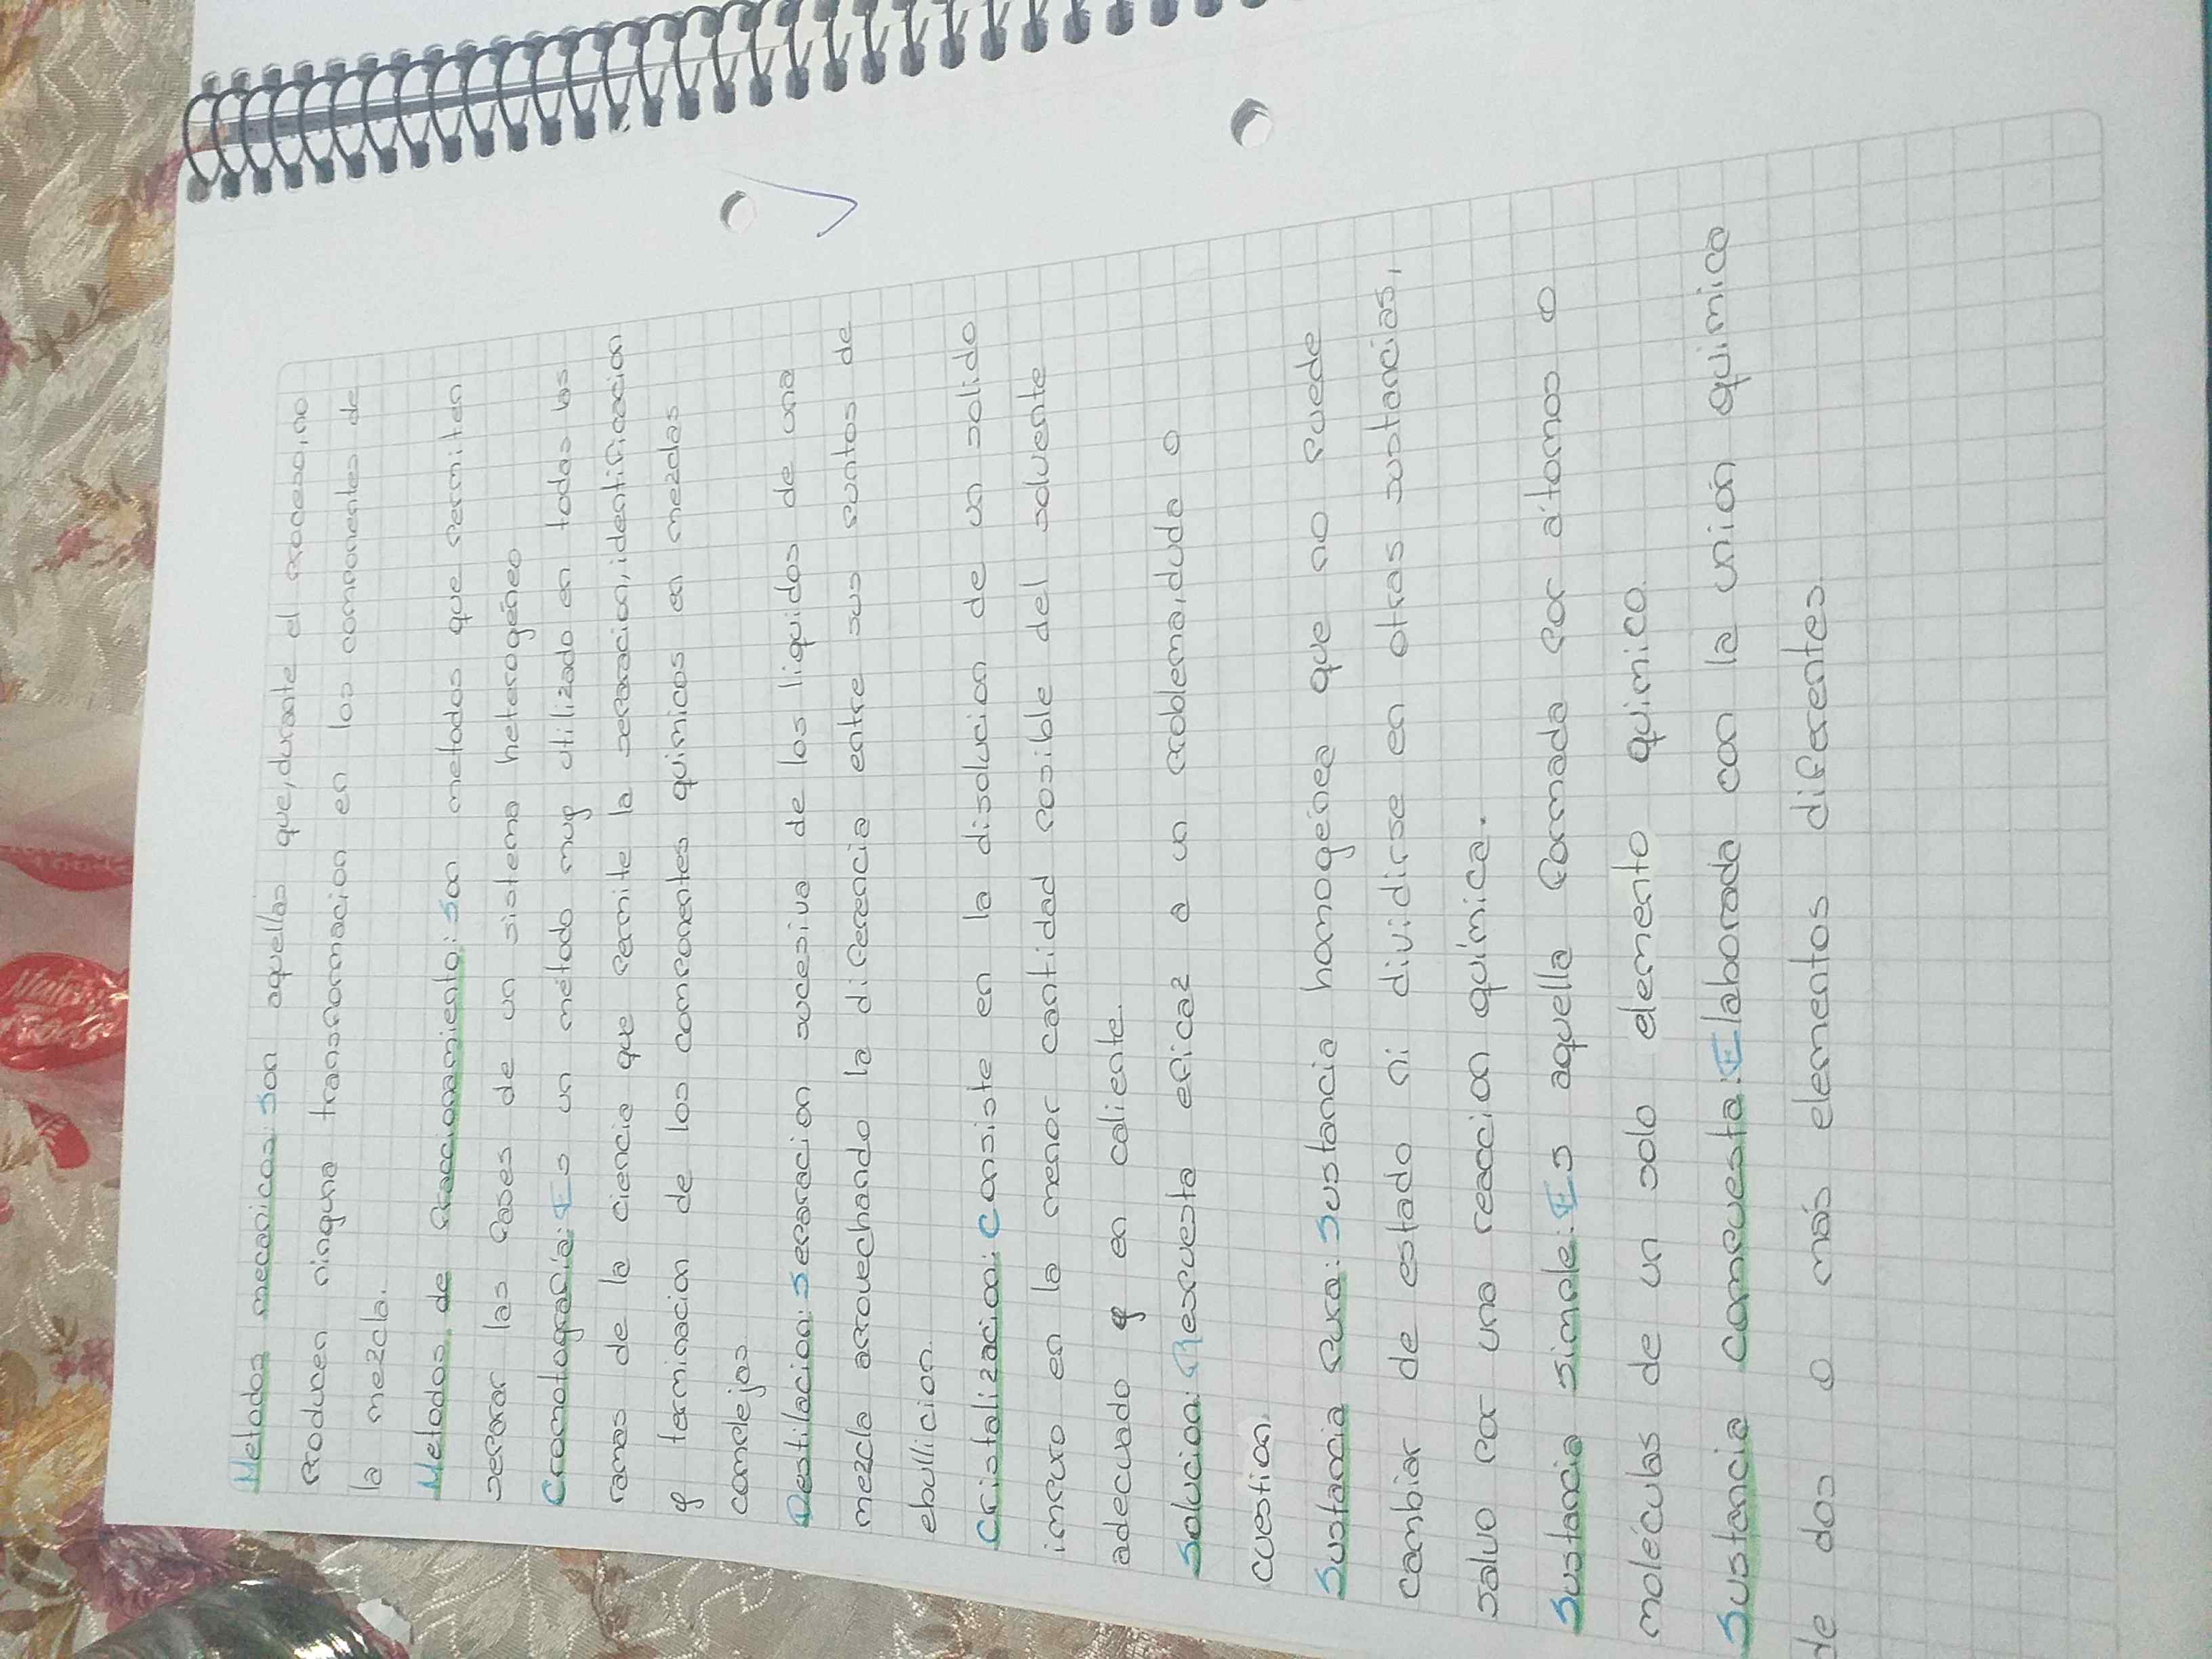 Metodos mecanicos: Son aquellas que, durante el proceso, no
producen ninguna transformacion en los componentes de
la mezcla.
Metodos de fraccionamiento: Son metodos que permiten
separar las fases de un sistema heterogéneo
Cromotografía: Es un método muy utilizado en todas las
ramas de la ciencia que permite la separacion, identificacion
y terminacion de los componentes quimicos en mezclas
complejas
Destilacion: Separacion sucesiva de los liquidos de una
mezcla aprovechando la diferencia entre sus puntos de
ebullicion.
Cristalizacion: Consiste en la disolucion de un solido
impuro en la menor cantidad posible del solvente
adecuado y en caliente.
Solucion: Respuesta eficaz a un problema, duda o
cuestion.
Sustancia Pura: Sustancia homogénea que no puede
cambiar de estado ni dividirse en otras sustancias,
salvo por una reaccion química.
Sustancia simple: Es aquella formada por átomos o
moléculas de un solo elemento quimico.
Sustancia compuesta: Elaborada con la unión quimica
de dos o más elementos diferentes.